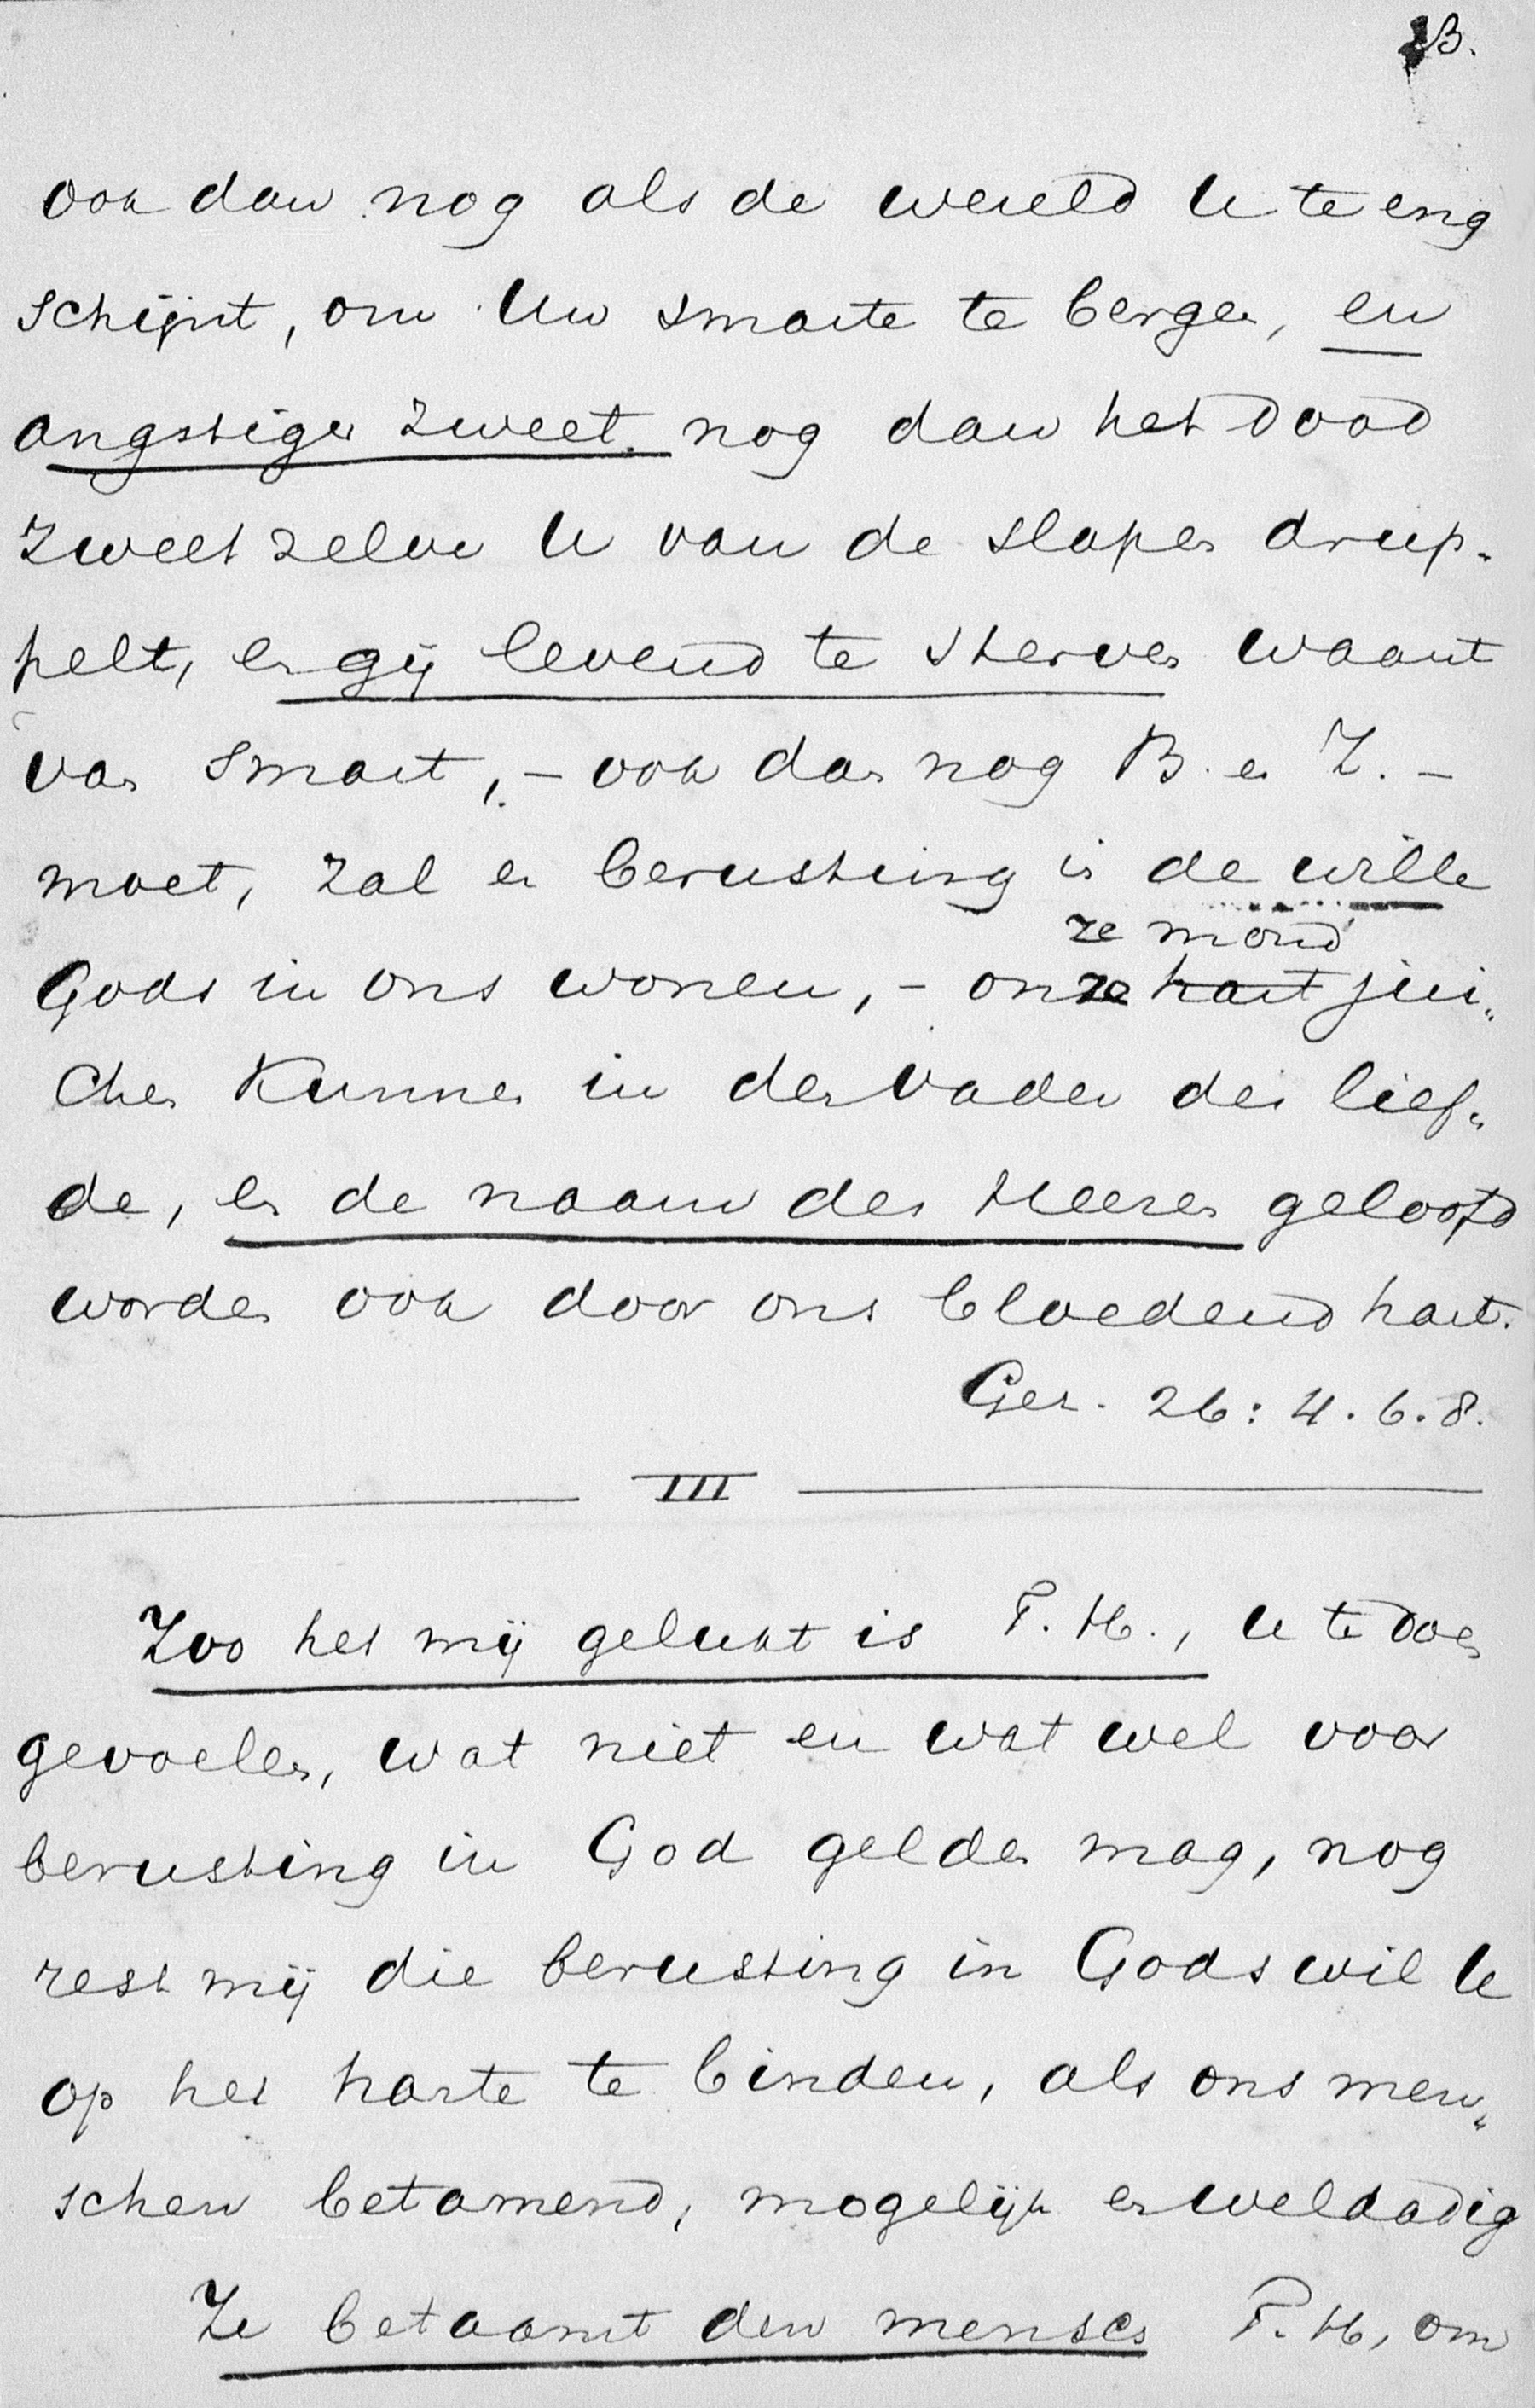 13.
ook dan nog als de wereld U te eng
schijnt, om Uw smarte te bergen, en
angstiger zweet nog dan het dood
zweet zelve U van de slapen drup-
pelt, en gij levend te sterven waant
van smart, - ook dan nog B. en Z. -
moet, zal er berusting in de wille
ze mond
Gods in ons wonen, - onze hart jui-
chen kunnen in den Vader der lief-
de, en de naam des Heeren geloofd
worden ook door ons bloedend hart.
Gez. 26: 4. 6. 8.
III
Zoo het mij gelukt is T. H., U te doen
gevoelen, wat niet en wat wel voor
berusting in God gelden mag, nog
rest mij die berusting in Gods wil U
op het harte te binden, als ons men-
schen betamend, mogelijk en weldadig
Ze betaamt den mensch T. H, om